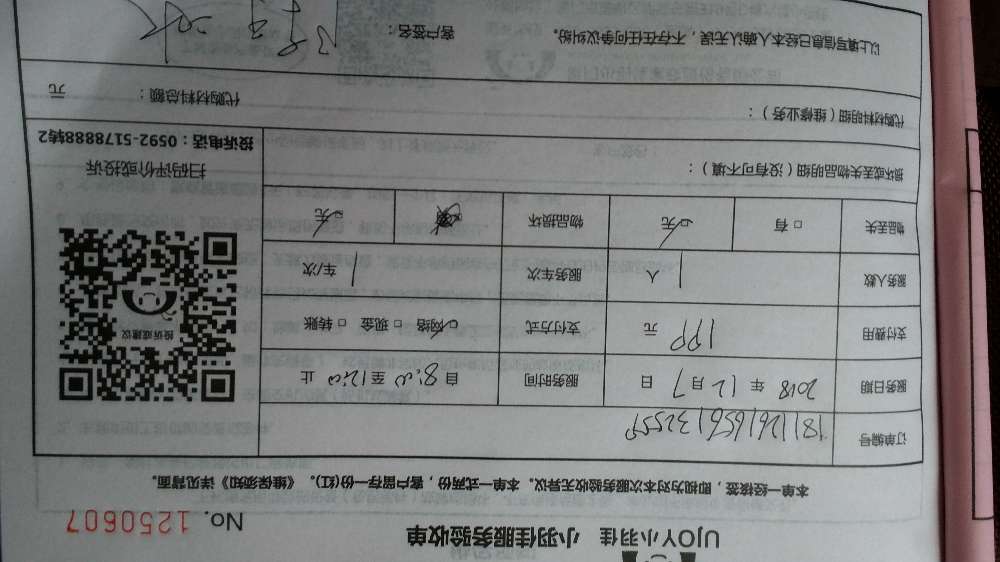 UJOY小羽佳 小羽佳服务验收单
No. 1250607
本单一经接签，即视为对本次服务验收无异议。本单一式两份，客户留存一份(红)。《维保须知》详见背面。
订单编号
服务日期 2018 年 12 月 7 日 服务时间 自 8:00 至 12:00 止
支付费用 199 元 支付方式 ☑网络 □ 现金 □ 转账
服务人数 1 人 服务车次 1 车/次
物品丢失 □ 有 ☑无 物品损坏 ☑无
投诉或建议
扫码评价或投诉
投诉电话：0592-5178888转2
损坏或丢失物品明细（没有可不填）：
代购材料明细（维修业务）：
代购材料总额： 元
以上填写信息已经本人确认无误，不存在任何争议纠纷。
客户签名：